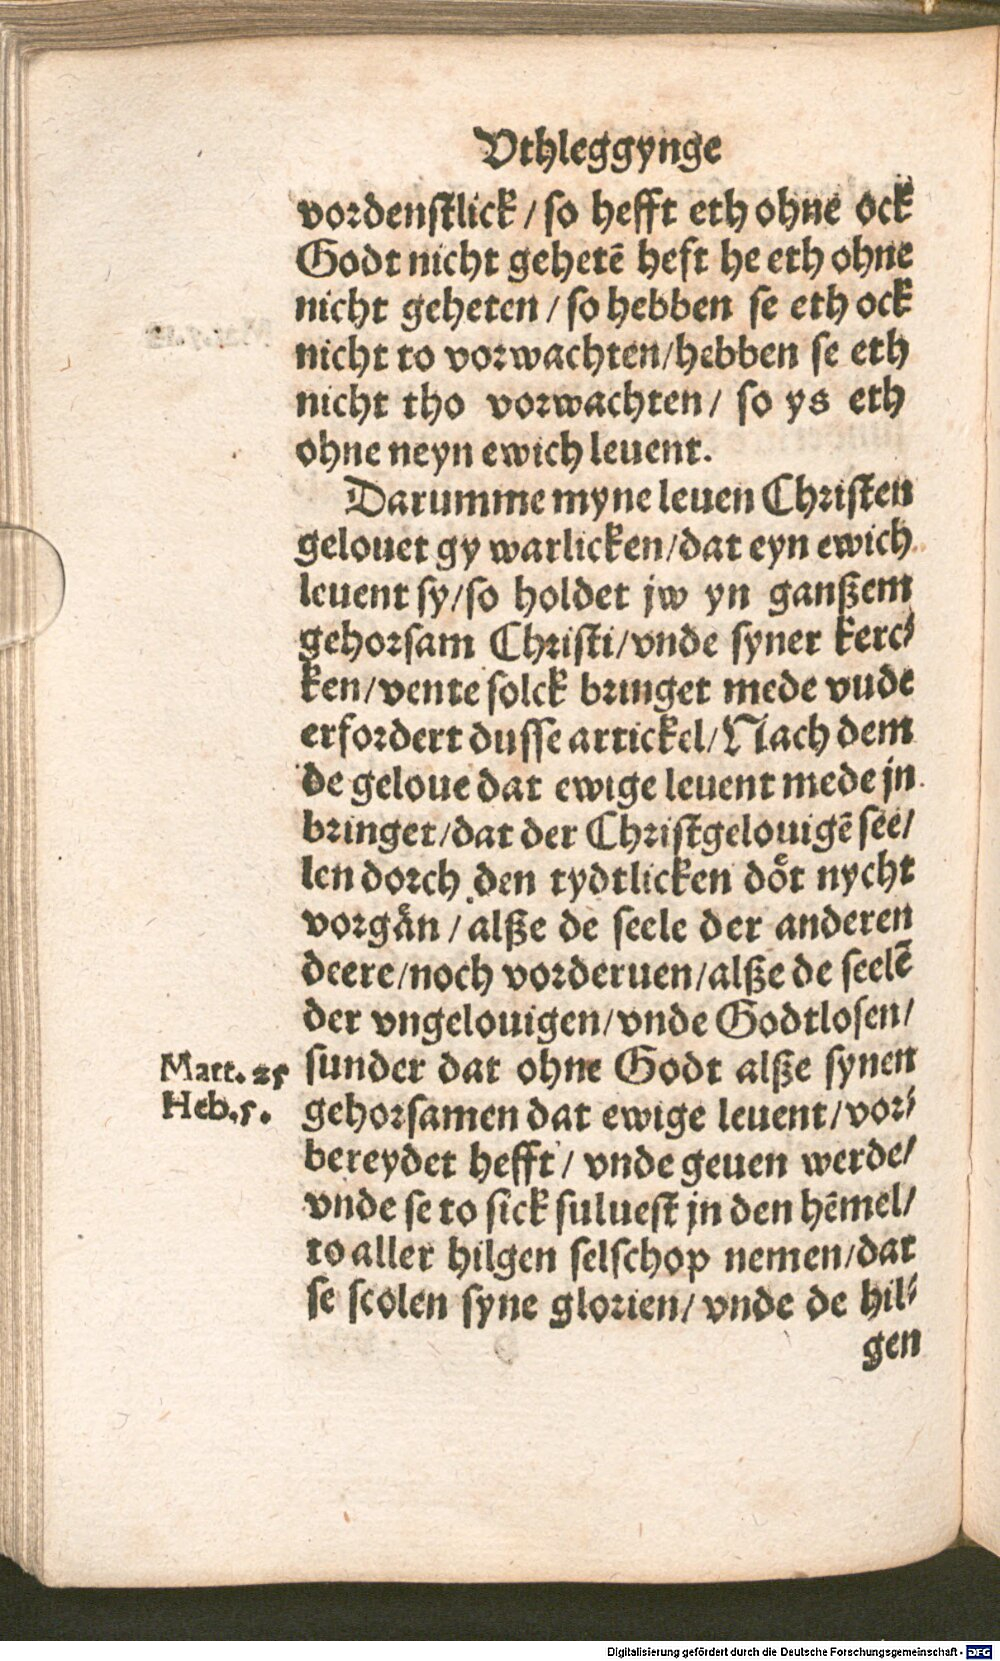 Vthleggynge
vordenstlick / so hefft eth ohne ock
Godt nicht gehetē heft he eth ohne
nicht geheten / so hebben se eth ock
nicht to vorwachten / hebben se eth
nicht tho vorwachten / so ys eth
ohne neyn ewich leuent.
Darumme myne leuen Christen
gelouet gy warlicken / dat eyn ewich
leuent sy / so holdet jw yn ganßem
gehorsam Christi / vnde syner kerc⸗
ken / vente solck bringet mede vnde
erfordert dusse artickel / Nach dem
de geloue dat ewige leuent mede jn
bringet / dat der Christgelouigē see/
len dorch den tydtlicken doͤt nycht
vorgaͤn / alße de seele der anderen
deere / noch vorderuen / alße de seelē
der vngelouigen / vnde Godtlosen /
Matt. 25
Heb. 5.
sunder dat ohne Godt alße synen
gehorsamen dat ewige leuent / vor⸗
bereydet hefft / vnde geuen werde /
vnde se to sick suluest jn den hēmel /
to aller hilgen selschop nemen / dat
se scolen syne glorien / vnde de hil⸗
gen
Digitalisierung gefördert durch die Deutsche Forschungsgemeinschaft - DFG